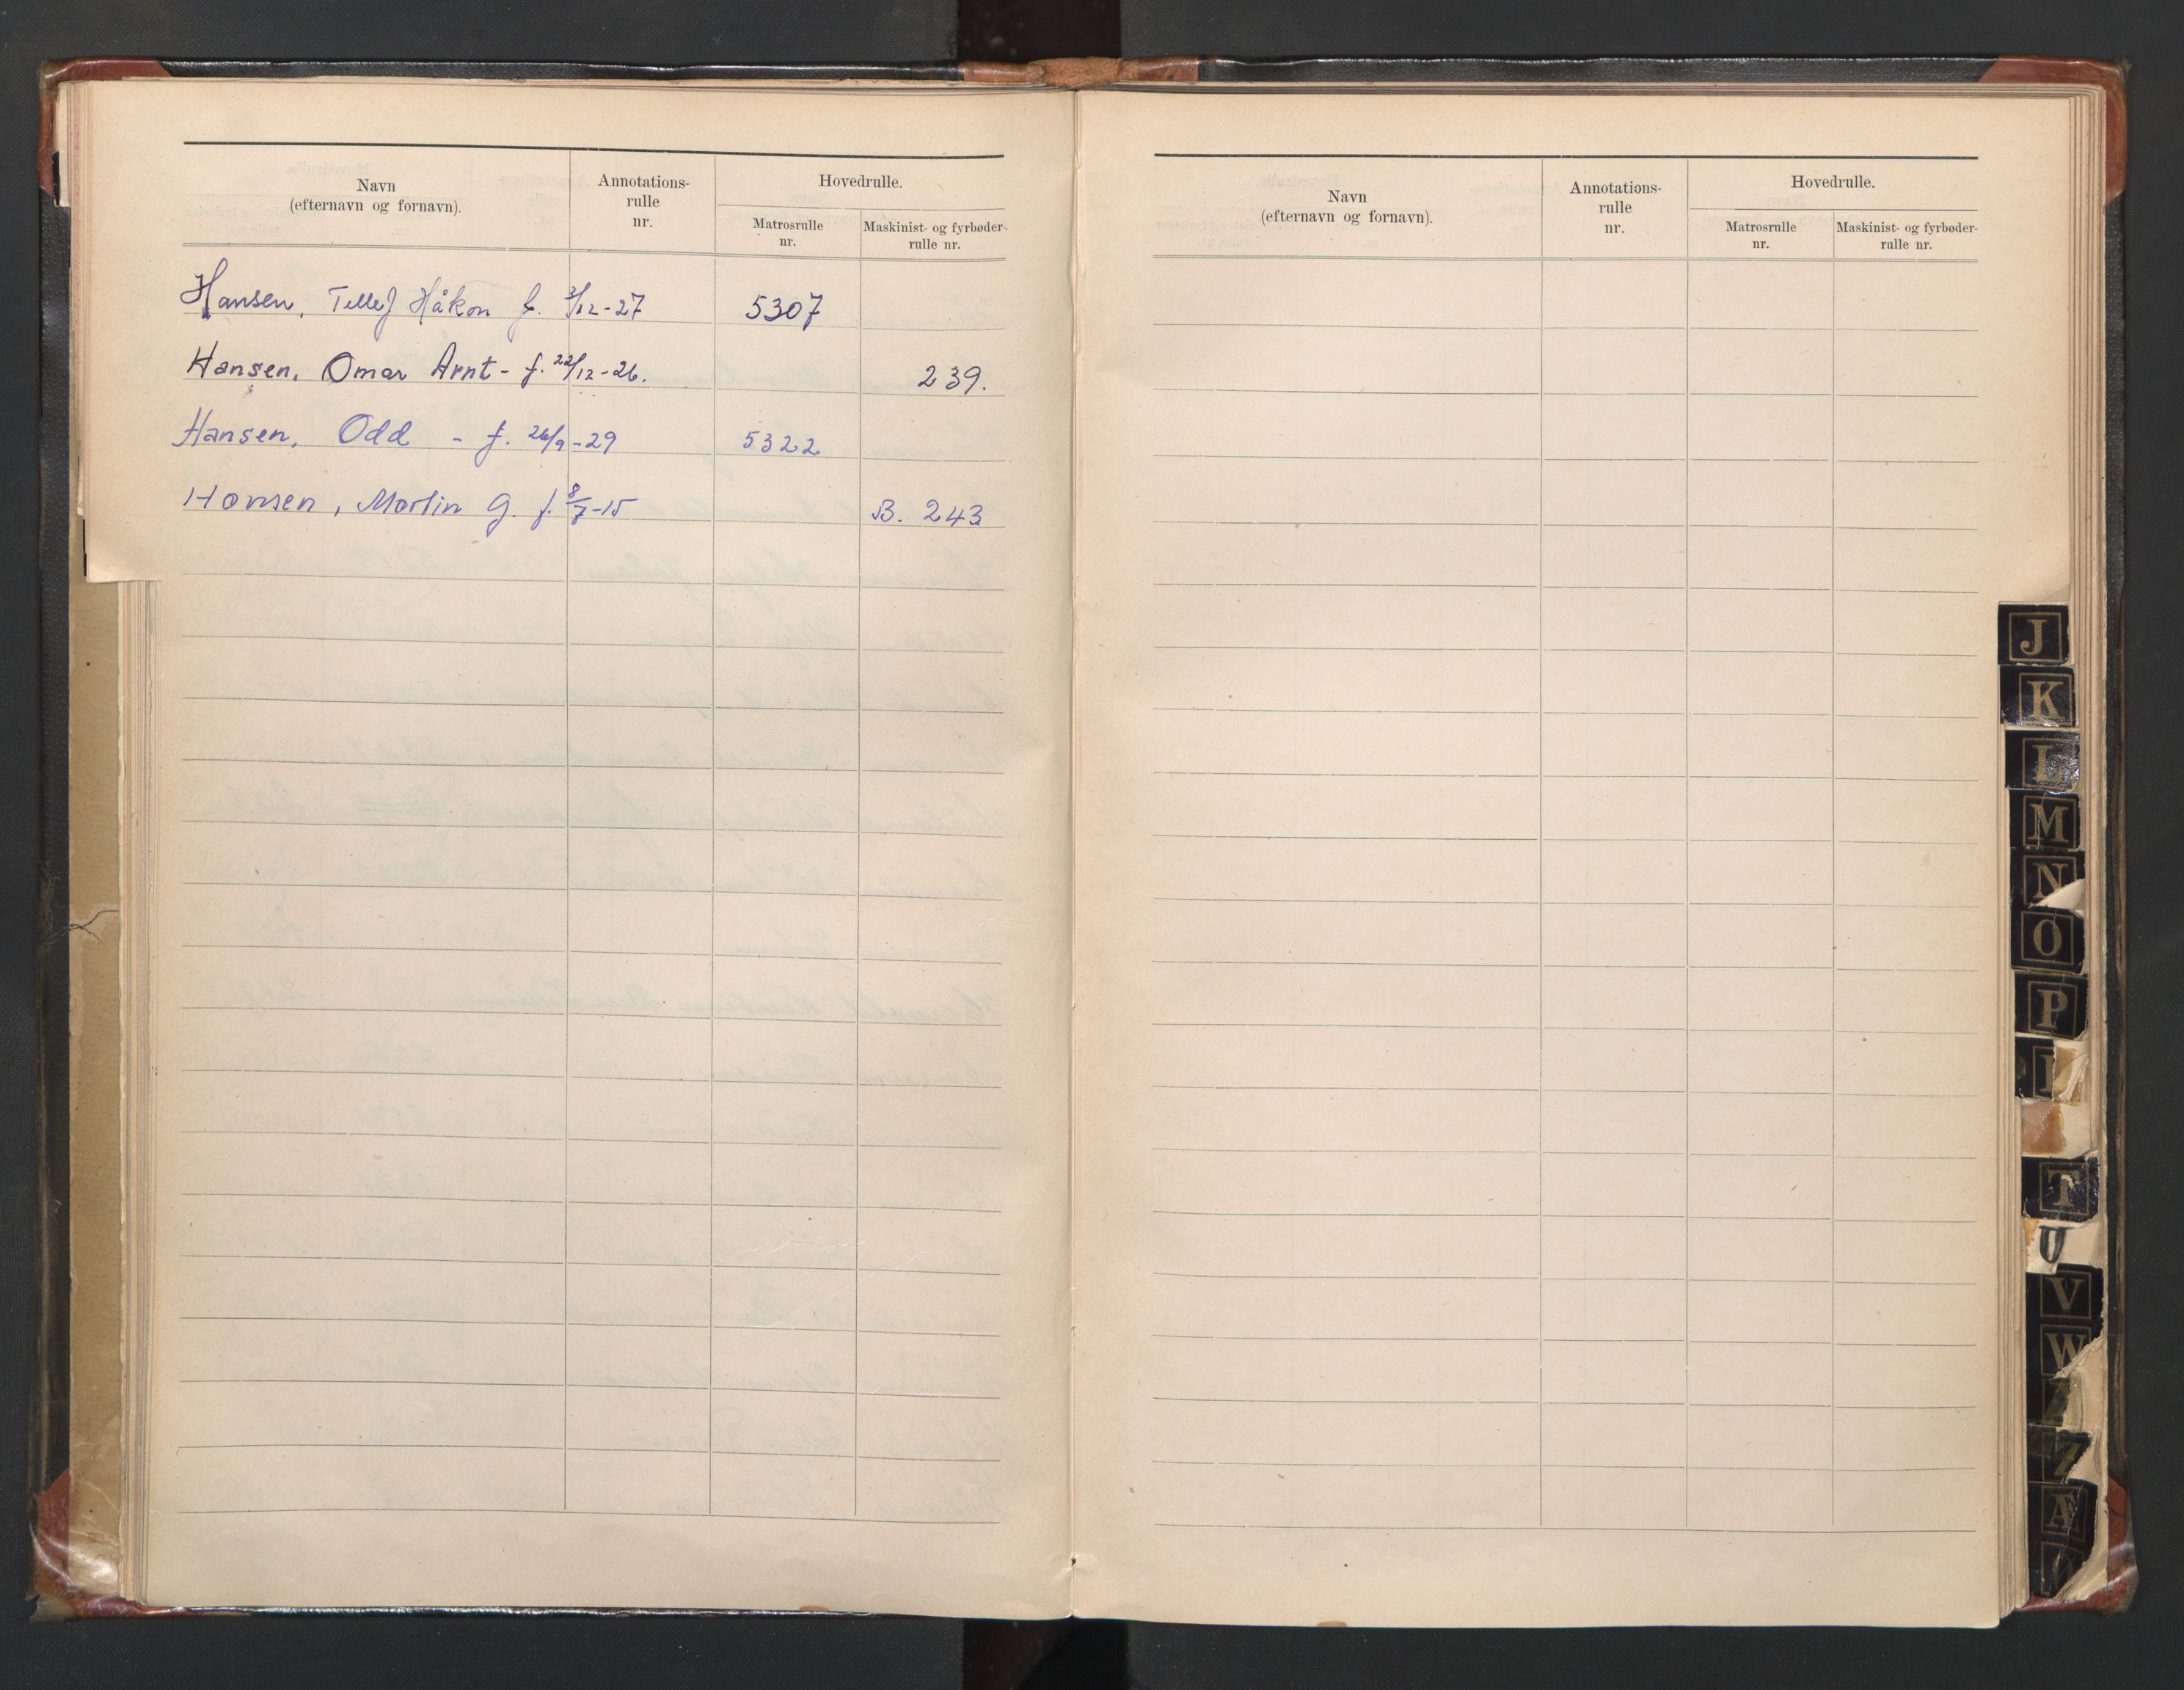 Navn
(efternavn og fornavn).
Annotations-
rulle
nr.
Hovedrulle.
Matrosrulle
nr.
Maskinist- og fyrbøder-
rulle nr.
Hansen, Tellef Håkon f. 3/12-27 5307
Hansen, Omar Arnt - f. 22/12-26. 239.
Hansen, Odd - f. 26/9-29 5322
Hansen, Martin G. f. 8/7-15 B. 243
Navn
(efternavn og fornavn).
Annotations-
rulle
nr.
Hovedrulle.
Matrosrulle
nr.
Maskinist- og fyrbøder-
rulle nr.
J
K
L
M
N
O
P
T
U
V
W
Z
Æ